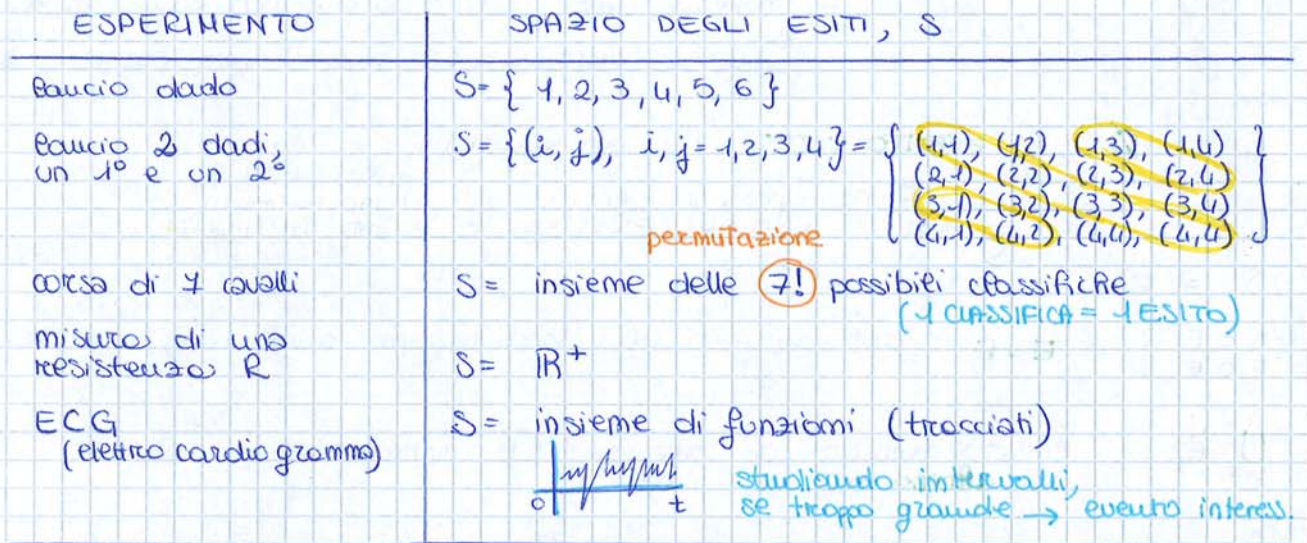 ESPERIMENTO
SPAZIO DEGLI ESITI, S
lancio dado
S = { 1, 2, 3, 4, 5, 6 }
lancio 2 dadi,
un 1° e un 2°
S = {(i, j), i, j = 1, 2, 3, 4} = { (1,1), (1,2), (1,3), (1,4)
(2,1), (2,2), (2,3), (2,4)
(3,1), (3,2), (3,3), (3,4)
(4,1), (4,2), (4,4), (4,4) }
permutazione
corsa di 7 cavalli
S = insieme delle 7! possibili classifiche
(1 CLASSIFICA = 1 ESITO)
misura di una
resistenza R
S = ℝ+
ECG
(elettro cardio gramma)
S = insieme di funzioni (tracciati)
0 t
studiando intervalli,
se troppo grande → evento interess.